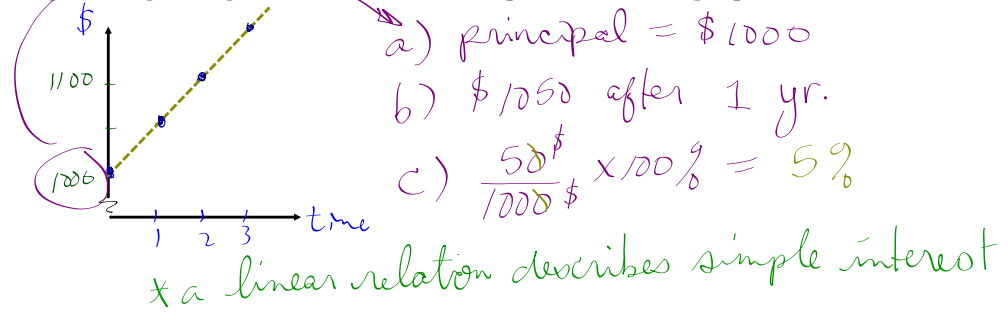 $
1100
1000
1 2 3
time
a) principal = $1000
b) $1050 after 1 yr.
c) 50$/1000$ x100% = 5%
* a linear relation describes simple interest